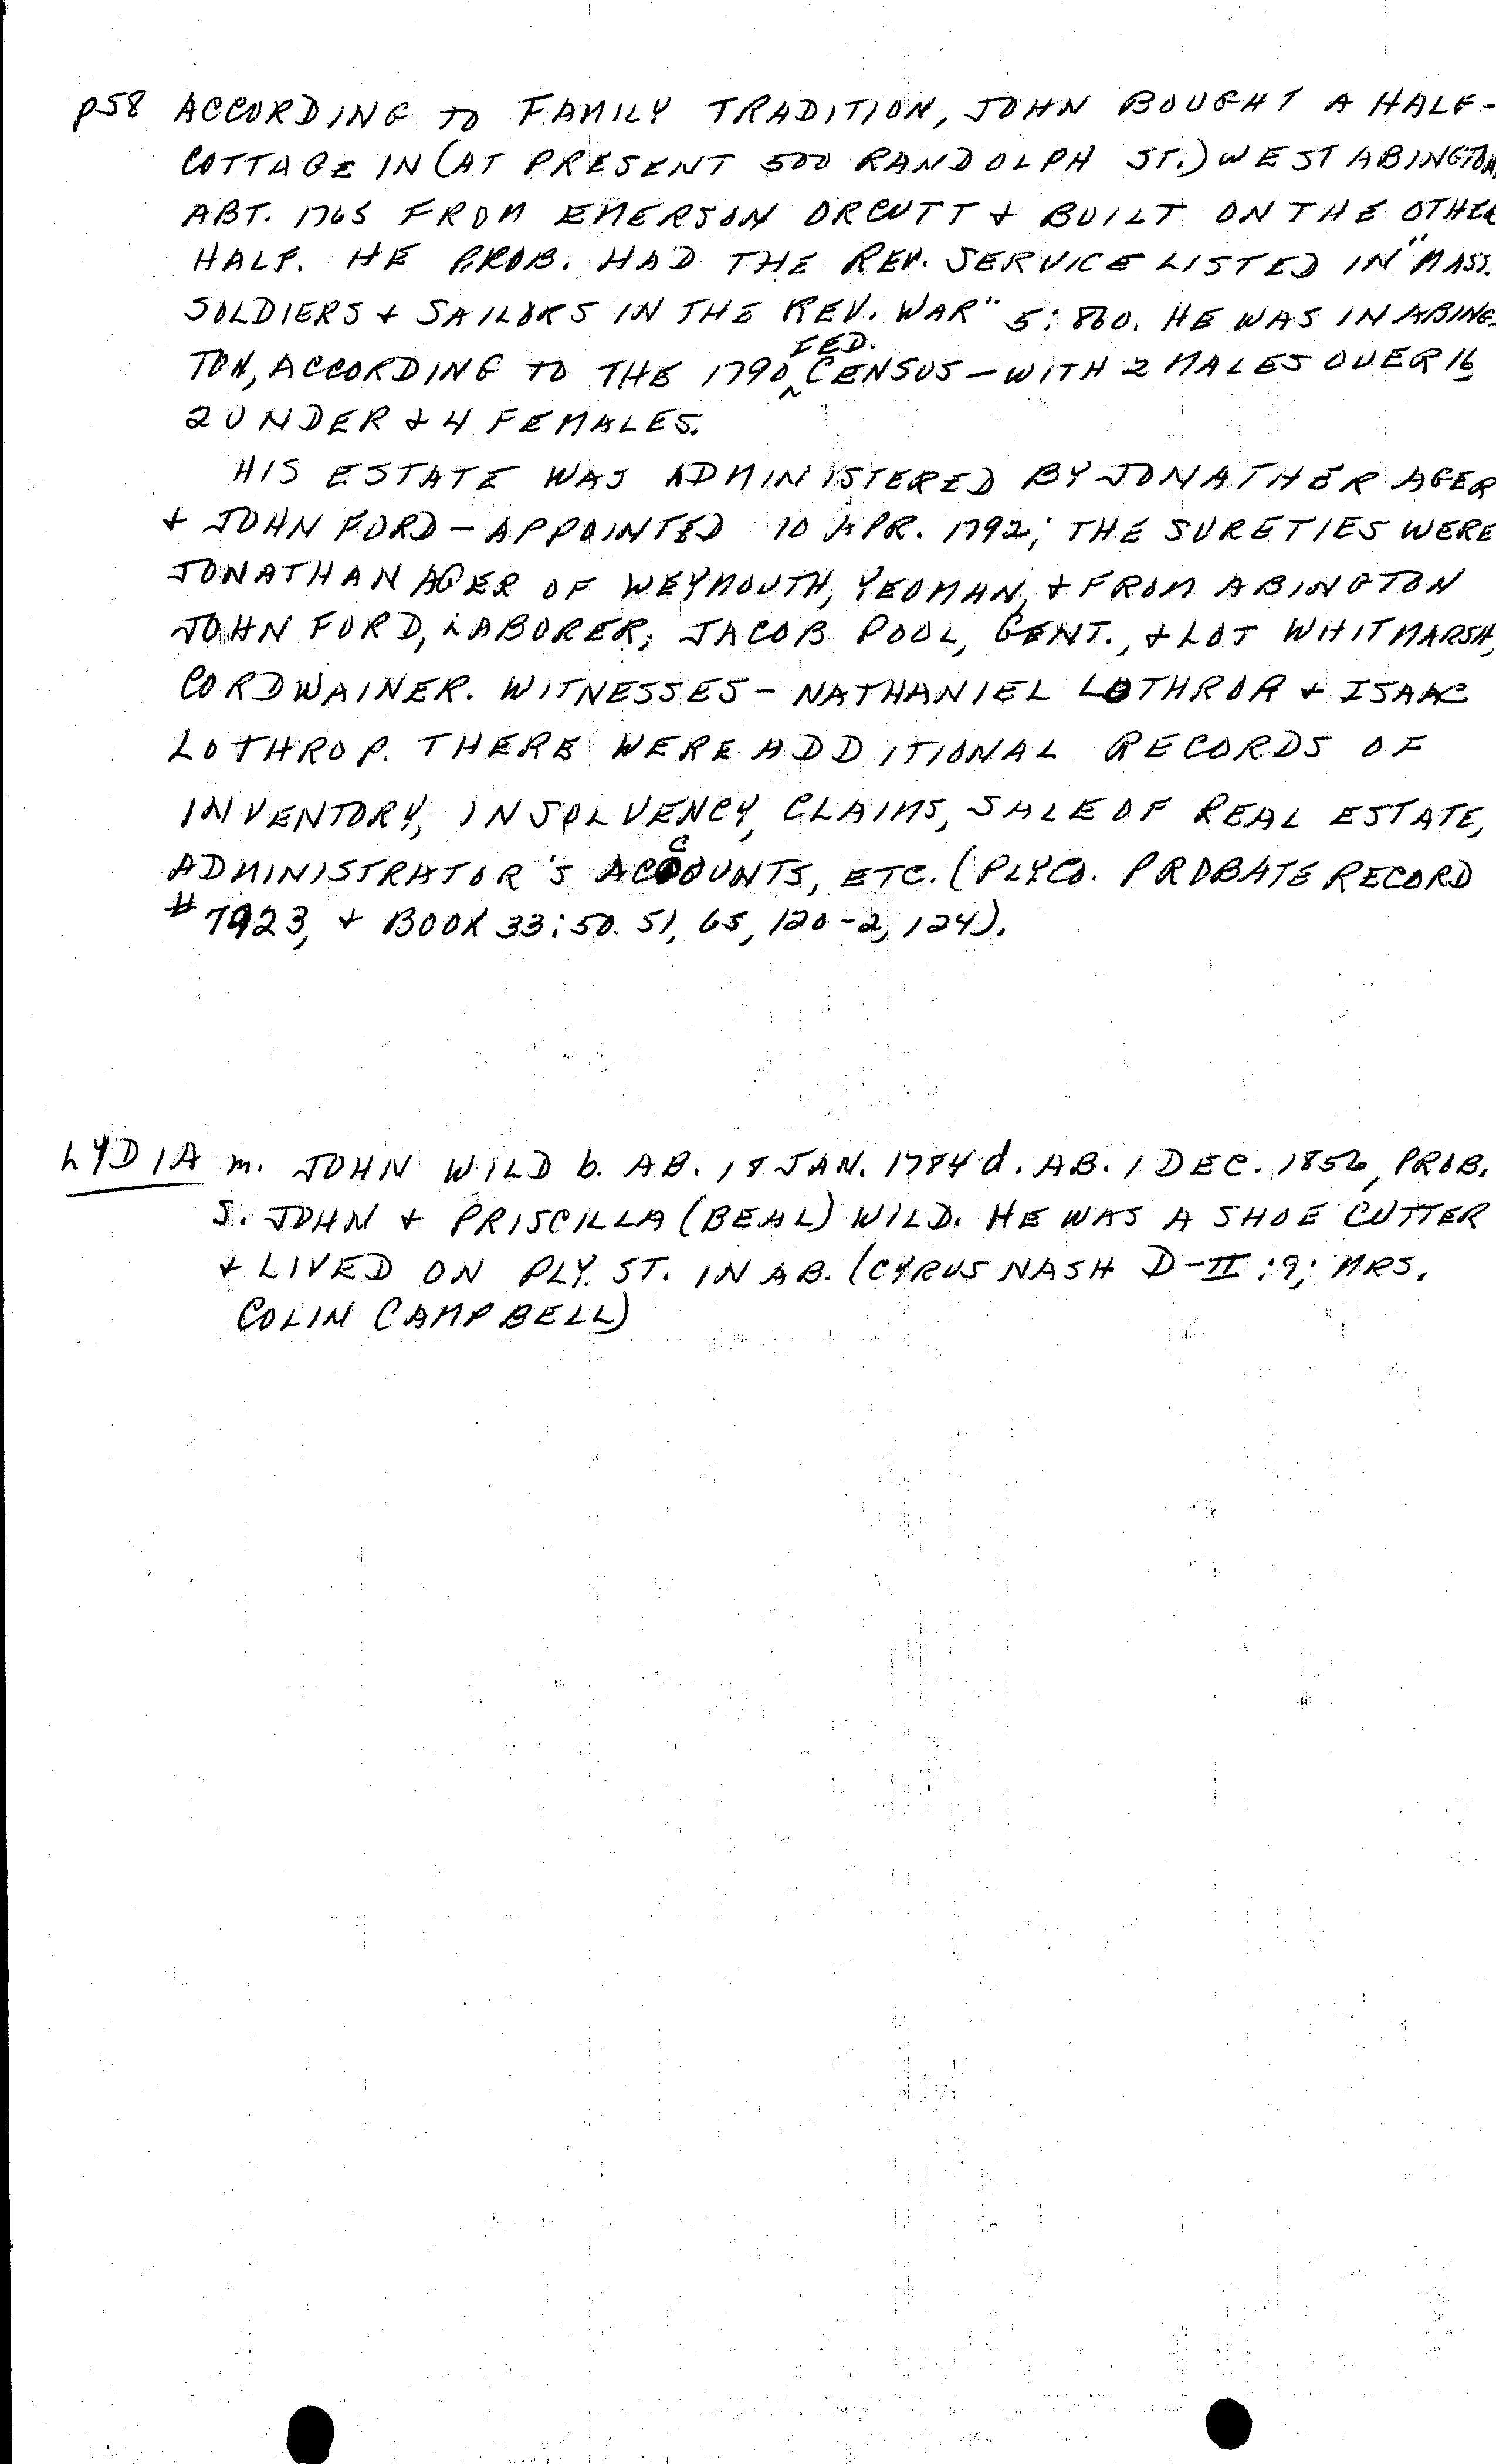 p58 ACCORDING TO FAMILY TRADITION, JOHN BOUGHT A HALF-
COTTAGE IN (AT PRESENT 500 RANDOLPH ST.) WEST ABINGTON,
ABT. 1765 FROM EMERSON ORCUTT & BUILT ON THE OTHER
HALF. HE PROB. HAD THE REV. SERVICE LISTED IN "MASS.
SOLDIERS & SAILORS IN THE REV. WAR" 5:860. HE WAS IN ABING-
FED.
TON, ACCORDING TO THE 1790 ^ CENSUS - WITH 2 MALES OVER 16,
2 UNDER & 4 FEMALES.
HIS ESTATE WAS ADMINISTERED BY JONATHER AGER
& JOHN FORD - APPOINTED 10 APR. 1792; THE SURETIES WERE
JONATHAN AGER OF WEYMOUTH, YEOMAN, & FROM ABINGTON
JOHN FORD, LABORER, JACOB POOL, GENT., & LOT WHITMARSH,
CORDWAINER. WITNESSES - NATHANIEL LOTHROR & ISAAC
LOTHROP. THERE WERE ADDITIONAL RECORDS OF
INVENTORY, INSOLVENCY, CLAIMS, SALE OF REAL ESTATE,
ADMINISTRATOR'S ACCOUNTS, ETC. (PLYCO. PROBATE RECORD
# 7923, & BOOK 33:50. 51, 65, 120-2, 124).
LYDIA m. JOHN WILD b. AB. 18 JAN. 1784 d. AB. 1 DEC. 1856, PROB.
S. JOHN & PRISCILLA (BEAL) WILD. HE WAS A SHOE CUTTER
& LIVED ON PLY. ST. IN AB. (CYRUS NASH D-II:9; MRS.
COLIN CAMPBELL)